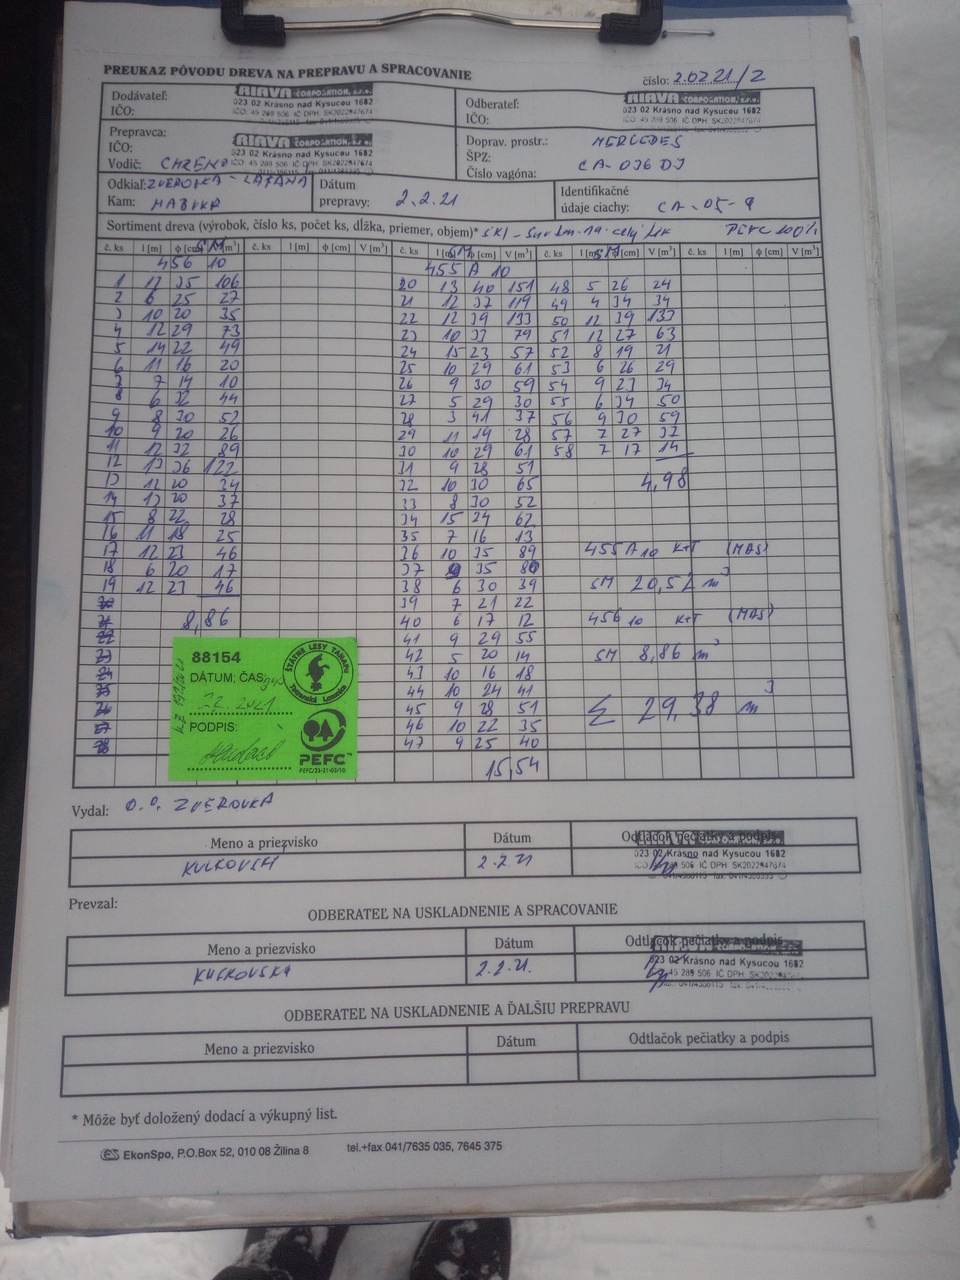 PREUKAZ PÔVODU DREVA NA PREPRAVU A SPRACOVANIE
číslo: 2.0221/2
Dodávateľ:
IČO:
RIAVA CORPORATION, s.r.o.
023 02 Krásno nad Kysucou 1682
IČO: 45 289 506 IČ DPH: SK2022947674
Odberateľ:
IČO:
RIAVA CORPORATION, s.r.o.
023 02 Krásno nad Kysucou 1682
IČO: 45 289 506 IČ DPH: SK2022947674
Prepravca:
IČO:
Vodič:
RIAVA CORPORATION, s.r.o.
023 02 Krásno nad Kysucou 1682
IČO: 45 289 506 IČ DPH: SK2022947674
Doprav. prostr.: MERCEDES
ŠPZ:
Číslo vagóna: CA-036DJ
Odkiaľ: ZVEROVKA - LATANÁ
Kam: HABOVKA
Dátum prepravy: 2.2.21
Identifikačné údaje ciachy: CA-05-9
Sortiment dreva (výrobok, číslo ks, počet ks, dĺžka, priemer, objem)*
PEFC 100%
č. ks l [m] ϕ [cm] V [m³] č. ks l [m] ϕ [cm] V [m³] č. ks l [m] ϕ [cm] V [m³] č. ks l [m] ϕ [cm] V [m³] č. ks l [m] ϕ [cm] V [m³]
SM SM SM
456 10
1 12 35 106
2 6 25 27
3 10 20 35
4 12 29 73
5 14 22 49
6 11 16 20
7 7 14 10
8 6 32 44
9 8 30 52
10 9 20 26
11 12 32 89
12 13 36 122
13 12 20 34
14 13 20 37
15 8 22 28
16 11 18 25
17 12 23 46
18 6 20 17
19 12 23 46
20
21
22
23
24
25
26
27
28
8,86
455 A 10
20 13 40 151
21 12 37 119
22 12 39 133
23 10 33 79
24 15 23 57
25 10 29 61
26 9 30 59
27 5 29 30
28 3 41 37
29 11 19 28
30 10 29 61
31 9 28 51
32 10 30 65
33 8 30 52
34 15 24 62
35 7 16 13
36 10 35 89
37 9 35 80
38 6 30 39
39 7 21 22
40 6 17 12
41 9 29 55
42 5 20 14
43 10 16 18
44 10 24 41
45 9 28 51
46 10 22 35
47 9 25 40
15,54
48 5 26 24
49 4 34 34
50 12 39 133
51 12 27 63
52 8 19 21
53 6 26 29
54 9 23 34
55 6 34 50
56 9 30 59
57 7 27 37
58 7 17 14
4,98
455 A 10 K+T (MAS)
SM 20,52 m³
456 10 K+T (MAS)
SM 8,86 m³
Σ 29,38 m³
88154
DÁTUM; ČAS:
2.2.2021
PODPIS:
ŠTÁTNE LESY TANAPu
Tatranská Lomnica
PEFC™
PEFC/23-21-03/10
Vydal: O.O. ZVEROVKA
Meno a priezvisko Dátum Odtlačok pečiatky a podpis
2.2.21
023 02 Krásno nad Kysucou 1682
IČO: 45 289 506 IČ DPH: SK2022947674
Prevzal:
ODBERATEĽ NA USKLADNENIE A SPRACOVANIE
Meno a priezvisko Dátum Odtlačok pečiatky a podpis
2.2.21.
023 02 Krásno nad Kysucou 1682
IČO: 45 289 506 IČ DPH: SK2022947674
ODBERATEĽ NA USKLADNENIE A ĎALŠIU PREPRAVU
Meno a priezvisko Dátum Odtlačok pečiatky a podpis
* Môže byť doložený dodací a výkupný list.
ES EkonSpo, P.O.Box 52, 010 08 Žilina 8 tel.+fax 041/7635 035, 7645 375